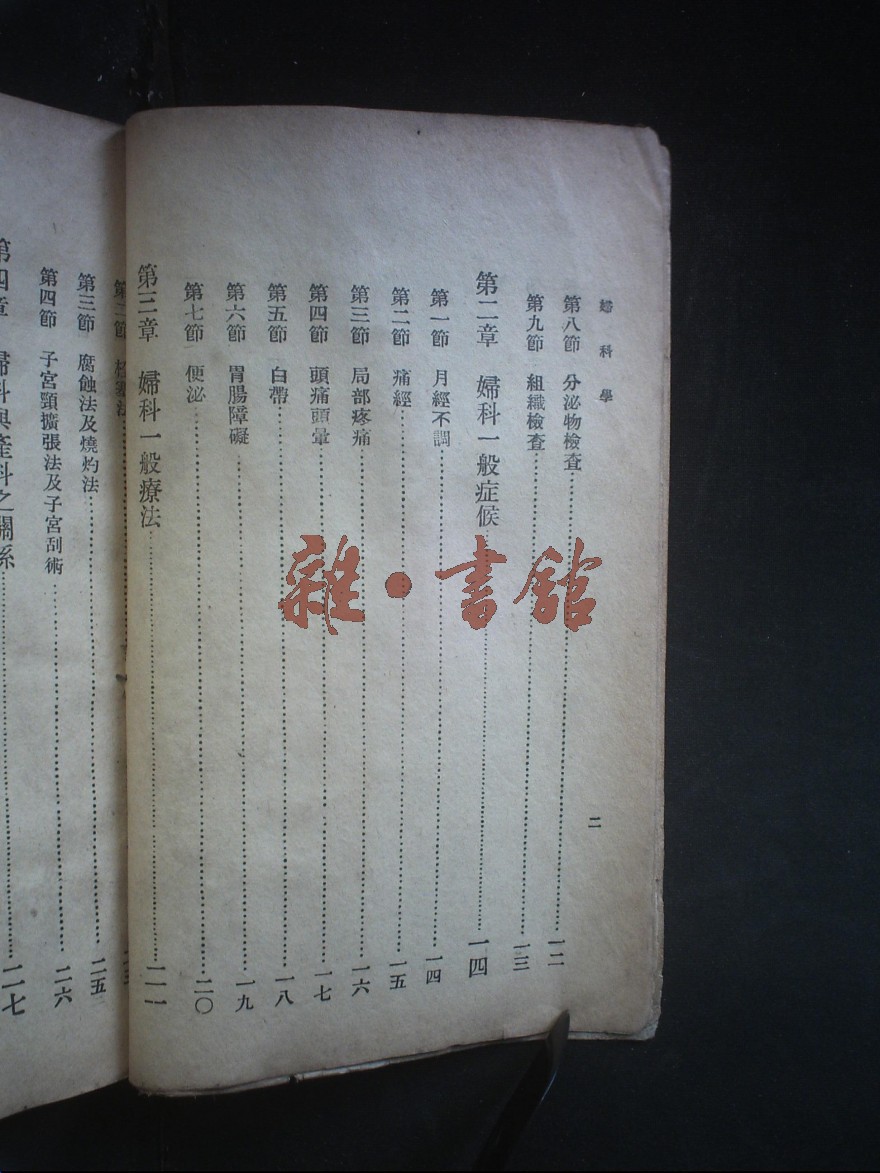 婦科學
二
第八節 分泌物檢查 一二
第九節 組織檢查 一三
第二章 婦科一般症候 一四
第一節 月經不調 一四
第二節 痛經 一五
第三節 局部疼痛 一六
第四節 頭痛頭暈 一七
第五節 白帶 一八
第六節 胃腸障礙 一九
第七節 便泌 二〇
第三章 婦科一般療法 二一
第二節
第三節 腐蝕法及燒灼法 二五
第四節 子宮頸擴張法及子宮刮術 二六
第四章 婦科與產科之關係 二七
雜·書館